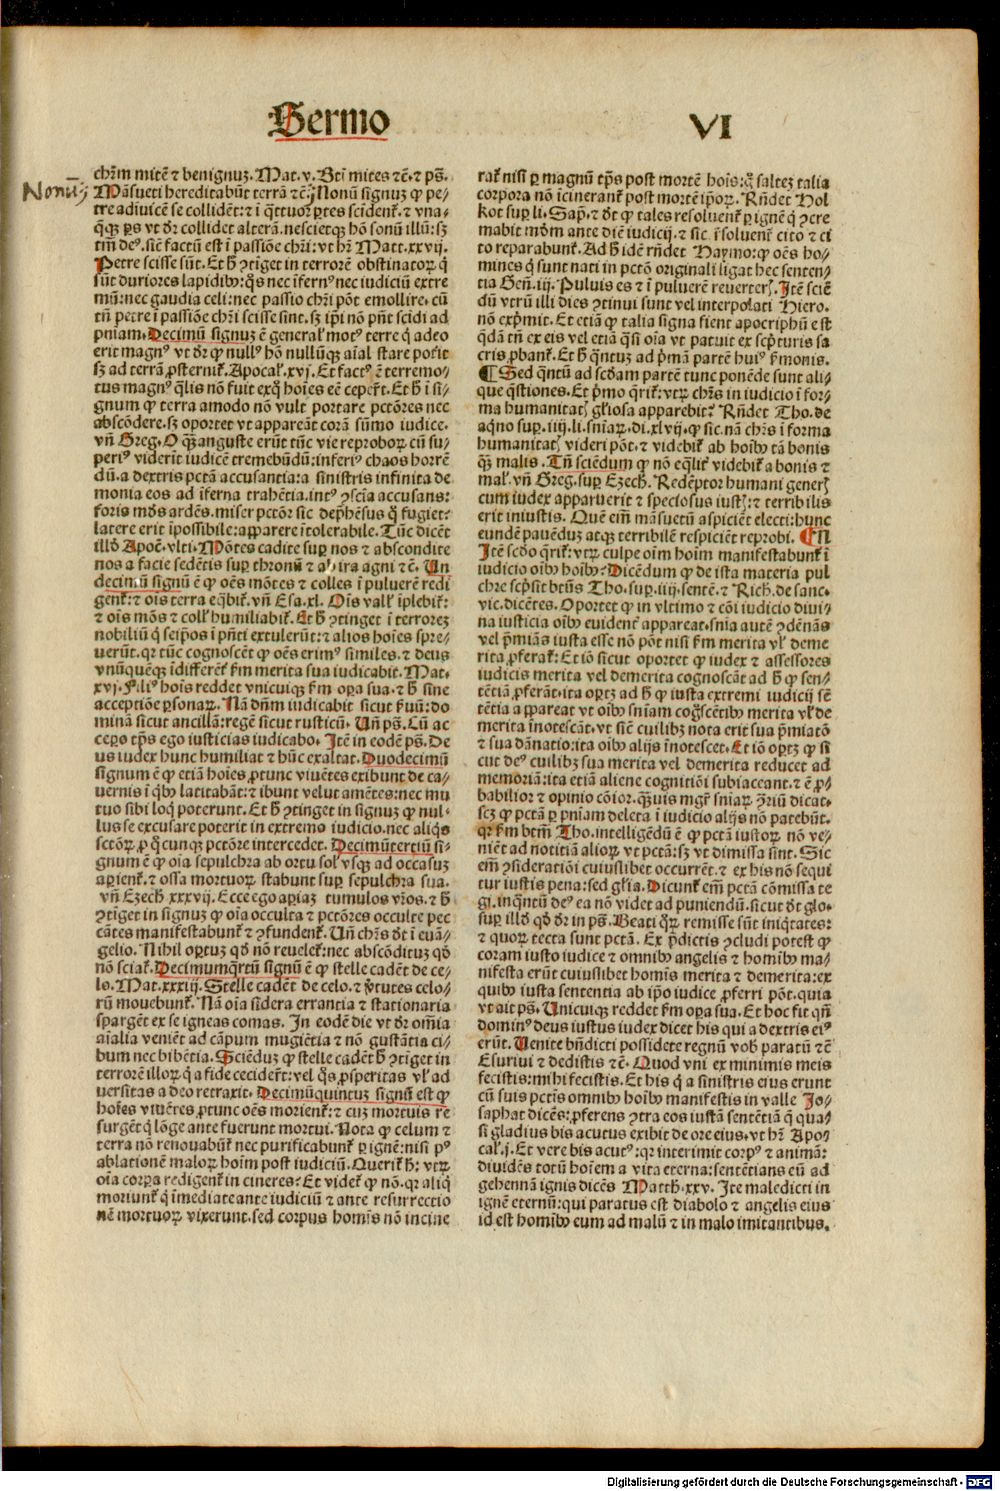 Sermo
VI
Nonū
chr̄m mitē ⁊ benignuꝫ. Mat. v. Bt̄i mites ⁊c̄. ⁊ ps̄.
Māsueti hereditabūt terrā ⁊c̄. Nonū signuꝫ ꝙ pe-
tre adinuicē se collidēt: ⁊ ī q̄ttuor ꝑtes scidenť. ⁊ vna-
q̄qꝫ ꝑs vt dr̄ collidet alterā. nescietqꝫ hō sonū illū: sꝫ
tm̄ deꝰ. sic̄ factū est ī passiōe chr̄i: vt hr̄ Matt. xxvij.
Petre scisse sūt. Et h̄ ↄtiget in terrorē obstinatoꝝ q̄
sūt duriores lapidibꝰ: q̄s nec īfernꝰ nec iudiciū extre
mū: nec gaudia celi: nec passio chr̄i pōt emollire. cū
tn̄ petre ī passiōe chr̄i scisse sint. sꝫ ip̄i nō pn̄t scidi ad
pn̄iam. Decimū signuꝫ ē generał motꝰ terre q̄ adeo
erit magnꝰ vt dr̄ ꝙ nullꝰ hō nullūqꝫ aīal stare poťit
sꝫ ad terrā ꝓsterniť. Apocał. xvj. Et factꝰ ē terremo-
tus magnꝰ q̄lis nō fuit exq̄ hoīes eē ceper̄t. Et h̄ ī si-
gnum ꝙ terra amodo nō vult portare pctōres nec
abscōdere. sꝫ oportet vt appareāt corā sūmo iudice.
vn̄ Greg. O q̄ꝫ anguste erūt tūc vie reproboꝝ cū su-
periꝰ viderīt iudicē tremebūdū: inferiꝰ chaos horrē
dū. a dextris pctā accusantia: a sinistris infinita de
monia eos ad īferna trahētia. intꝰ ↄscīa accusans:
foris mūdꝰ ardēs. miser pctōr sic dep̄hēsus q̄ fugiet?
latere erit īpossibile: apparere ītolerabile. Tūc dicēt
illd̄ Apoc̄. vlti. Mōtes cadite suꝑ nos ⁊ abscondite
nos a facie sedētis suꝑ thronū ⁊ ab ira agni ⁊c̄. Un
decimū signū ē ꝙ oēs mōtes ⁊ colles ī puluerē redi
genť: ⁊ oīs terra eq̄biť. vn̄ Esa. xl. Oīs vallꝭ īplebiť:
⁊ oīs mōs ⁊ collꝭ humiliabiť. Et h̄ ↄtinget ī terroreꝫ
nobiliū q̄ seip̄os ī pn̄ti extulerūt: ⁊ alios hoīes spre-
uerūt. qr tūc cognoscēt ꝙ oēs erimꝰ similes. ⁊ deus
vnūquēqꝫ īdifferēť ẜm merita sua iudicabit. Mat.
xvj. Filiꝰ hoīs reddet vnicuiqꝫ ẜm oꝑa sua. ⁊ h̄ sine
acceptiōe ꝑsonaꝝ. Nā dn̄m iudicabit sicut ẜuū: do
minā sicut ancillā: regē sicut rusticū. Un̄ ps̄. Cū ac
cepo tp̄s ego iusticias iudicabo. Itē in eodē ps̄. De
us iudex hunc humiliat ⁊ hūc exaltat. Duodecimū
signum ē ꝙ etiā hoīes ꝓtunc viuētes exibunt de ca-
uernis ī q̄bꝰ latitabāt: ⁊ ibunt velut amētes: nec mu
tuo sibi loq̄ poterunt. Et h̄ ↄtinget in signuꝫ ꝙ nul-
lus se excusare poterit in extremo iudicio. nec aliq̄s
sctōꝝ ꝓ q̄cunqꝫ pctōre intercedet. Decimūtertiū si-
gnum ē ꝙ oīa sepulchra ab ortu solꝭ vsqꝫ ad occasuꝫ
aꝑienť. ⁊ ossa mortuoꝝ stabunt suꝑ sepulchra sua.
vn̄ Ezech̄ xxxvij. Ecce ego aꝑiaꝫ tumulos vr̄os. ⁊ h̄
ↄtiget in signuꝫ ꝙ oīa occulta ⁊ pctōres occulte pec
cātes manifestabunť ⁊ ↄfundenť. Un̄ chr̄s dt̄ ī euā-
gelio. Nihil opertuꝫ qd̄ nō reueleť: nec abscōdituꝫ qd̄
nō sciať. Decimumq̄rtū signū ē ꝙ stelle cadēt de ce-
lo. Mat. xxxiij. Stelle cadēt de celo. ⁊ v̓tutes celo-
rū mouebunť. Nā oīa sidera errantia ⁊ stationaria
spargēt ex se igneas comas. In eodē die vt dr̄ om̄ia
aīalia veniēt ad cāpum mugiētia ⁊ nō gustātia ci-
bum nec bibētia. Sciēduꝫ ꝙ stelle cadēt h̄ ↄtiget in
terrorē illoꝝ q̄ a fide ceciderūt: vel q̄s ꝓsperitas vł ad
uersitas a deo retraxit. Decimūquintuꝫ signū est ꝙ
hoīes viuētes ꝓtunc oēs morienť: ⁊ cuꝫ mortuis re
surgēt q̄ lōge ante fuerunt mortui. Nota ꝙ celum ⁊
terra nō renouabūť nec purificabunť ꝑ ignē: nisi pꝰ
ablationē maloꝝ hoīm post iudiciū. Queriť h̄: vtꝝ
oīa corꝑa redigenť in cineres? Et videť ꝙ nō. qr aliq̄
moriunť q̄ īmediate ante iudiciū ⁊ ante resurrectio
nē mortuoꝝ vixerunt. sed corpus homīs nō incine
rať nisi ꝑ magnū tp̄s post mortē hoīs: g̊ salteꝫ talia
corpora nō īcinerant̉ post mortē ip̄oꝝ. Rn̄det Hol
kot suꝑ li. Sap̄. ⁊ dt̄ ꝙ tales resoluenť ꝑ ignē q̄ ↄcre
mabit mūdm ante diē iudicij. ⁊ sic īsoluenť cito ⁊ ci
to reparabunť. Ad h̄ idē rn̄det Haymo: ꝙ oēs ho-
mines q̄ sunt nati in pctō originali ligat hec senten-
tia Geñ. iij. Puluis es ⁊ ī puluerē reuerterꝭ. Itē sciē
dū vtrū illi dies ↄtinui sunt vel interpolati Hiero.
nō exp̄mit. Et etiā ꝙ talia signa fient apocriphū est
q̄dā tn̄ ex eis vel etiā q̄si oīa vt patuit ex sc̄pturis sa
cris ꝓbanť. Et h̄ q̄ntuꝫ ad p̄mā partē huiꝰ ẜmonis.
¶ Sed q̄ntū ad scd̄am partē tunc ponēde sunt ali-
que q̄stiones. Et p̄mo q̄riť: vtꝝ chr̄s in iudicio ī for-
ma humanitatꝭ gl̄iosa apparebit? Rn̄det Tho. de
aq̄no suꝑ. iiij. li. sn̄iaꝝ. di. xlvij. ꝙ sic. nā chr̄s ī forma
humanitatꝭ videri pōt. ⁊ videbiť ab hoībꝰ tā bonis
q̄ꝫ malis. Tn̄ sciēdum ꝙ nō eq̄lit̉ videbiť a bonis ⁊
malꝭ. vn̄ Greg. suꝑ Ezech̄. Redēptor humani generꝭ
cum iudex apparuerit ⁊ speciosus iustꝭ: ⁊ terribilis
erit iniustis. Quē eīm māsuetū aspiciēt electi: hunc
eundē pauēduꝫ atqꝫ terribilē respiciēt reprobi. ¶
Itē scd̄o q̄riť: vtꝝ culpe oīm hoīm manifestabunť ī
iudicio oībꝰ hoībꝰ? Dicēdum ꝙ de ista materia pul
chre sc̄psit bt̄us Tho. suꝑ. iiij. sentē. ⁊ Rich̄. de sanc.
vic. dicētes. Oportet ꝙ in vltimo ⁊ cōi iudicio diui-
na iusticia oībꝰ euident̉ appareat. sn̄ia autē ↄdēnās
vel p̄miās iusta esse nō pōt nisi ẜm merita vł deme
rita ꝓferať: Et iō sicut oportet ꝙ iudex ⁊ assessores
iudicis merita vel demerita cognoscāt ad h̄ ꝙ sen-
tētiā ꝓferāt. ita oꝑtꝫ ad h̄ ꝙ iusta extremi iudicij sē
tētia appareat vt oībꝰ sn̄iam cogscētibꝰ merita vł de
merita īnotescāt. vt sic̄ cuilibꝫ nota erit sua p̄miatō
⁊ sua dānatio: ita oībꝰ alijs īnotescet. Et iō oꝑtꝫ ꝙ si
cut deꝰ cuilibꝫ sua merita vel demerita reducet ad
memoriā: ita etiā aliene cognitiōi subiaceant. ⁊ ē ꝓ-
babilior ⁊ opinio cōior. q̄ꝫuis mgr̄ sn̄iaꝝ ↄriū dicat.
scꝫ ꝙ pctā ꝑ pn̄iam deleta ī iudicio alijs nō patebūt.
qr ẜm btm̄ Tho. intelligēdū ē ꝙ pctā iustoꝝ nō ve-
niēt ad notitiā alioꝝ vt pctā: sꝫ vt dimissa sint. Sic
em̄ ↄsideratiōi cuiuslibet occurrēt. ⁊ ex his nō sequi
tur iustis pena: sed gl̄ia. Dicunť em̄ pctā cōmissa te
gi. inq̄ntū deꝰ ea nō videt ad puniendū. sicut dt̄ glo.
suꝑ illd̄ qd̄ dr̄ in ps̄. Beati q̄ꝝ remisse sūt iniq̄tates:
⁊ quoꝝ tecta sunt pctā. Ex p̄dictis ↄcludi potest ꝙ
coram iusto iudice ⁊ omnibꝰ angelis ⁊ homībꝰ ma-
nifesta erūt cuiuslibet homīs merita ⁊ demerita: ex
quibꝰ iusta sententia ab ip̄o iudice ꝓferri pōt. quia
vt ait ps̄. Unicuiqꝫ reddet ẜm oꝑa sua. Et hoc fit qn̄
dominꝰ deus iustus iudex dicet his qui a dextris eiꝰ
erūt. Uenite bn̄dicti possidete regnū vob̄ paratū ⁊c̄
Esuriui ⁊ dedistis ⁊c̄. Quod vni ex minimis meis
fecistis: mihi fecistis. Et his q̄ a sinistris eius erunt
cū suis pctīs omnibꝰ hoībꝰ manifestis in valle Jo-
saphat dicēs: ꝓferens ↄtra eos iustā sentētiā q̄ qua-
si gladius bis acutus exibit de ore eius. vt hr̄ Apo-
cał. j. Et vere bis acutꝰ: qr interimit corpꝰ ⁊ animā:
diuidēs totū hoīem a vita eterna: sentētians eū ad
gehennā ignis dicēs Matth. xxv. Ite maledicti in
ignē eternū: qui paratus est diabolo ⁊ angelis eius
id est homībꝰ eum ad malū ⁊ in malo imitantibus.
Digitalisierung gefördert durch die Deutsche Forschungsgemeinschaft - DFG